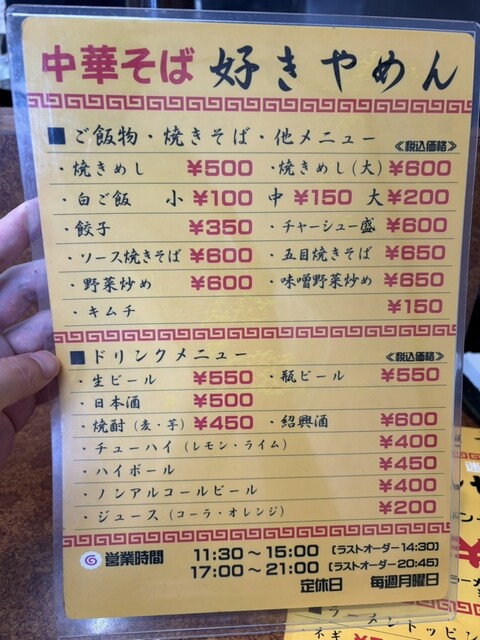 中華そば 好きやめん
■ご飯物・焼きそば・他メニュー ≪税込価格≫
・焼きめし ¥500 ・焼きめし(大) ¥600
・白ご飯 小 ¥100 中 ¥150 大 ¥200
・餃子 ¥350 ・チャーシュー盛 ¥600
・ソース焼きそば ¥600 ・五目焼きそば ¥650
・野菜炒め ¥600 ・味噌野菜炒め ¥650
・キムチ ¥150
■ドリンクメニュー ≪税込価格≫
・生ビール ¥550 ・瓶ビール ¥550
・日本酒 ¥500
・焼酎(麦・芋) ¥450 ・紹興酒 ¥600
・チューハイ(レモン・ライム) ¥400
・ハイボール ¥450
・ノンアルコールビール ¥400
・ジュース(コーラ・オレンジ) ¥200
営業時間 11:30～15:00 [ラストオーダー14:30]
17:00～21:00 [ラストオーダー20:45]
定休日 毎週月曜日
■ラーメントッピン
ネギ